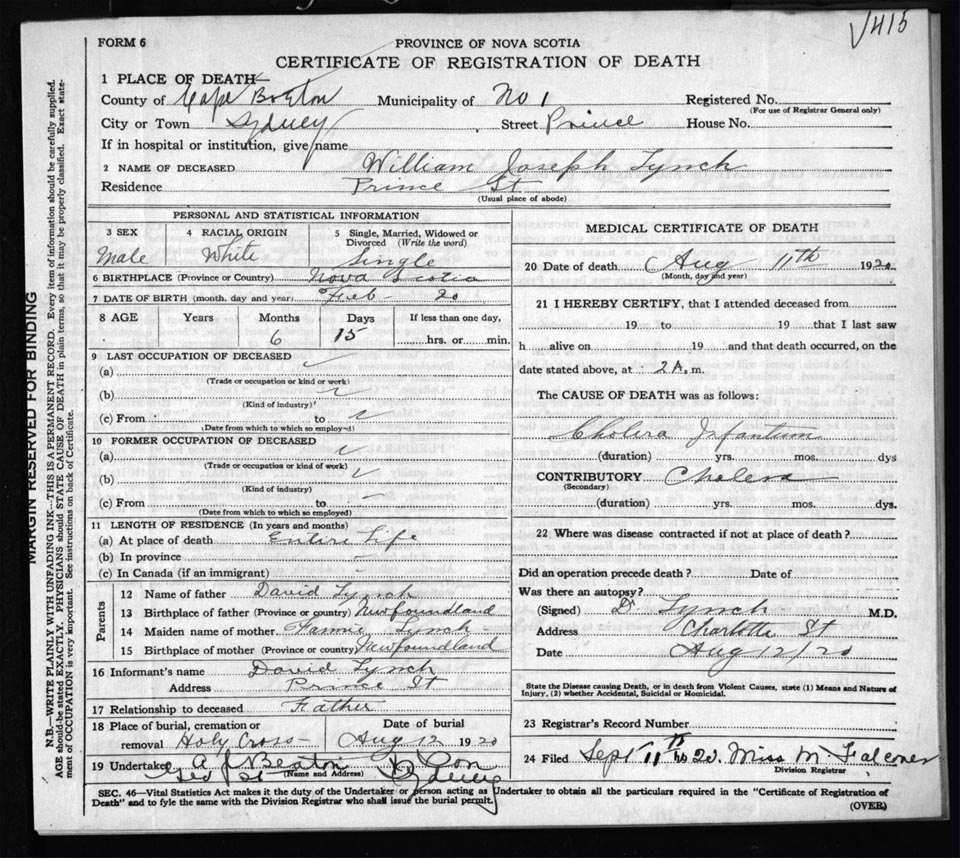 √415
FORM 6
PROVINCE OF NOVA SCOTIA
CERTIFICATE OF REGISTRATION OF DEATH
1 PLACE OF DEATH
County of Cape Breton Municipality of No 1 Registered No.
(For use of Registrar General only)
City or Town Sydney Street Prince House No.
If in hospital or institution, give name
2 NAME OF DECEASED William Joseph Lynch
Residence Prince St
(Usual place of abode)
PERSONAL AND STATISTICAL INFORMATION
3 SEX 4 RACIAL ORIGIN 5 Single, Married, Widowed or Divorced (Write the word)
Male White Single
6 BIRTHPLACE (Province or Country) Nova Scotia
7 DATE OF BIRTH (month, day and year) Feb - 20
8 AGE Years Months Days If less than one day,
6 15 hrs. or min.
9 LAST OCCUPATION OF DECEASED
(a)
(Trade or occupation or kind or work)
(b)
(Kind of industry)
(c) From to
(Date from which to which so employed)
10 FORMER OCCUPATION OF DECEASED
(a)
(Trade or occupation or kind of work)
(b)
(Kind of industry)
(c) From to
(Date from which to which so employed)
11 LENGTH OF RESIDENCE (In years and months)
(a) At place of death Entire Life
(b) In province
(c) In Canada (if an immigrant)
Parents
12 Name of father David Lynch
13 Birthplace of father (Province or country) Newfoundland
14 Maiden name of mother Fannie Lynch
15 Birthplace of mother (Province or country) Newfoundland
16 Informant's name David Lynch
Address Prince St
17 Relationship to deceased Father
18 Place of burial, cremation or Date of burial
removal Holy Cross Aug 12 1920
19 Undertaker A J Beaton & Son
(Name and Address)
Geo St Sydney
MEDICAL CERTIFICATE OF DEATH
20 Date of death Aug 11th 1920
(Month, day and year)
21 I HEREBY CERTIFY, that I attended deceased from
19 to 19 that I last saw
h alive on 19 and that death occurred, on the
date stated above, at 2 A. m.
The CAUSE OF DEATH was as follows:
Cholera Infantum
(duration) yrs. mos. dys
CONTRIBUTORY Cholera
(Secondary)
(duration) yrs. mos. dys.
22 Where was disease contracted if not at place of death?
Did an operation precede death? Date of
Was there an autopsy?
(Signed) Dr Lynch M.D.
Address Charlotte St
Date Aug 12/20
State the Disease causing Death, or in death from Violent Causes, state (1) Means and Nature of
Injury, (2) whether Accidental, Suicidal or Homicidal.
23 Registrar's Record Number
24 Filed Sept 11th 1920. Miss M Falconer
Division Registrar
SEC. 46—Vital Statistics Act makes it the duty of the Undertaker or person acting as Undertaker to obtain all the particulars required in the "Certificate of Registration of
Death" and to fyle the same with the Division Registrar who shall issue the burial permit.
(OVER)
MARGIN RESERVED FOR BINDING
N.B.—WRITE PLAINLY WITH UNFADING INK—THIS IS A PERMANENT RECORD. Every item of information should be carefully supplied.
AGE should be stated EXACTLY. PHYSICIANS should STATE CAUSE OF DEATH in plain terms, so that it may be properly classified. Exact state-
ment of OCCUPATION is very important. See instructions on back of Certificate.